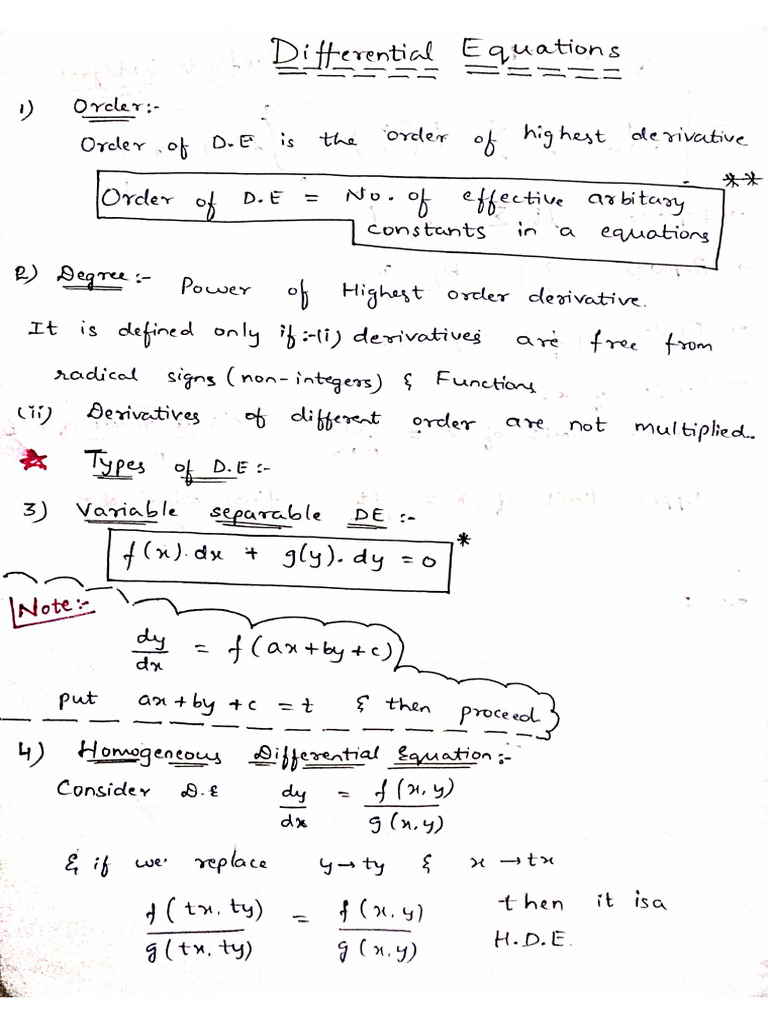 Differential Equations
1) Order:-
Order of D.E. is the order of highest derivative
**
Order of D.E = No. of effective arbitary
constants in a equations
2) Degree:- Power of Highest order derivative.
It is defined only if:-(i) derivatives are free from
radical signs (non-integers) & Functions
(ii) Derivatives of different order are not multiplied.
Types of D.E:-
3) Variable separable DE :-
f(x).dx + g(y).dy = 0 *
Note:-
dy/dx = f(ax+by+c)
put ax+by+c = t & then proceed
4) Homogeneous Differential Equation:-
Consider D.E dy/dx = f(x,y)/g(x,y)
& if we replace y→ty & x→tx
f(tx,ty)/g(tx,ty) = f(x,y)/g(x,y) then it is a
H.D.E.